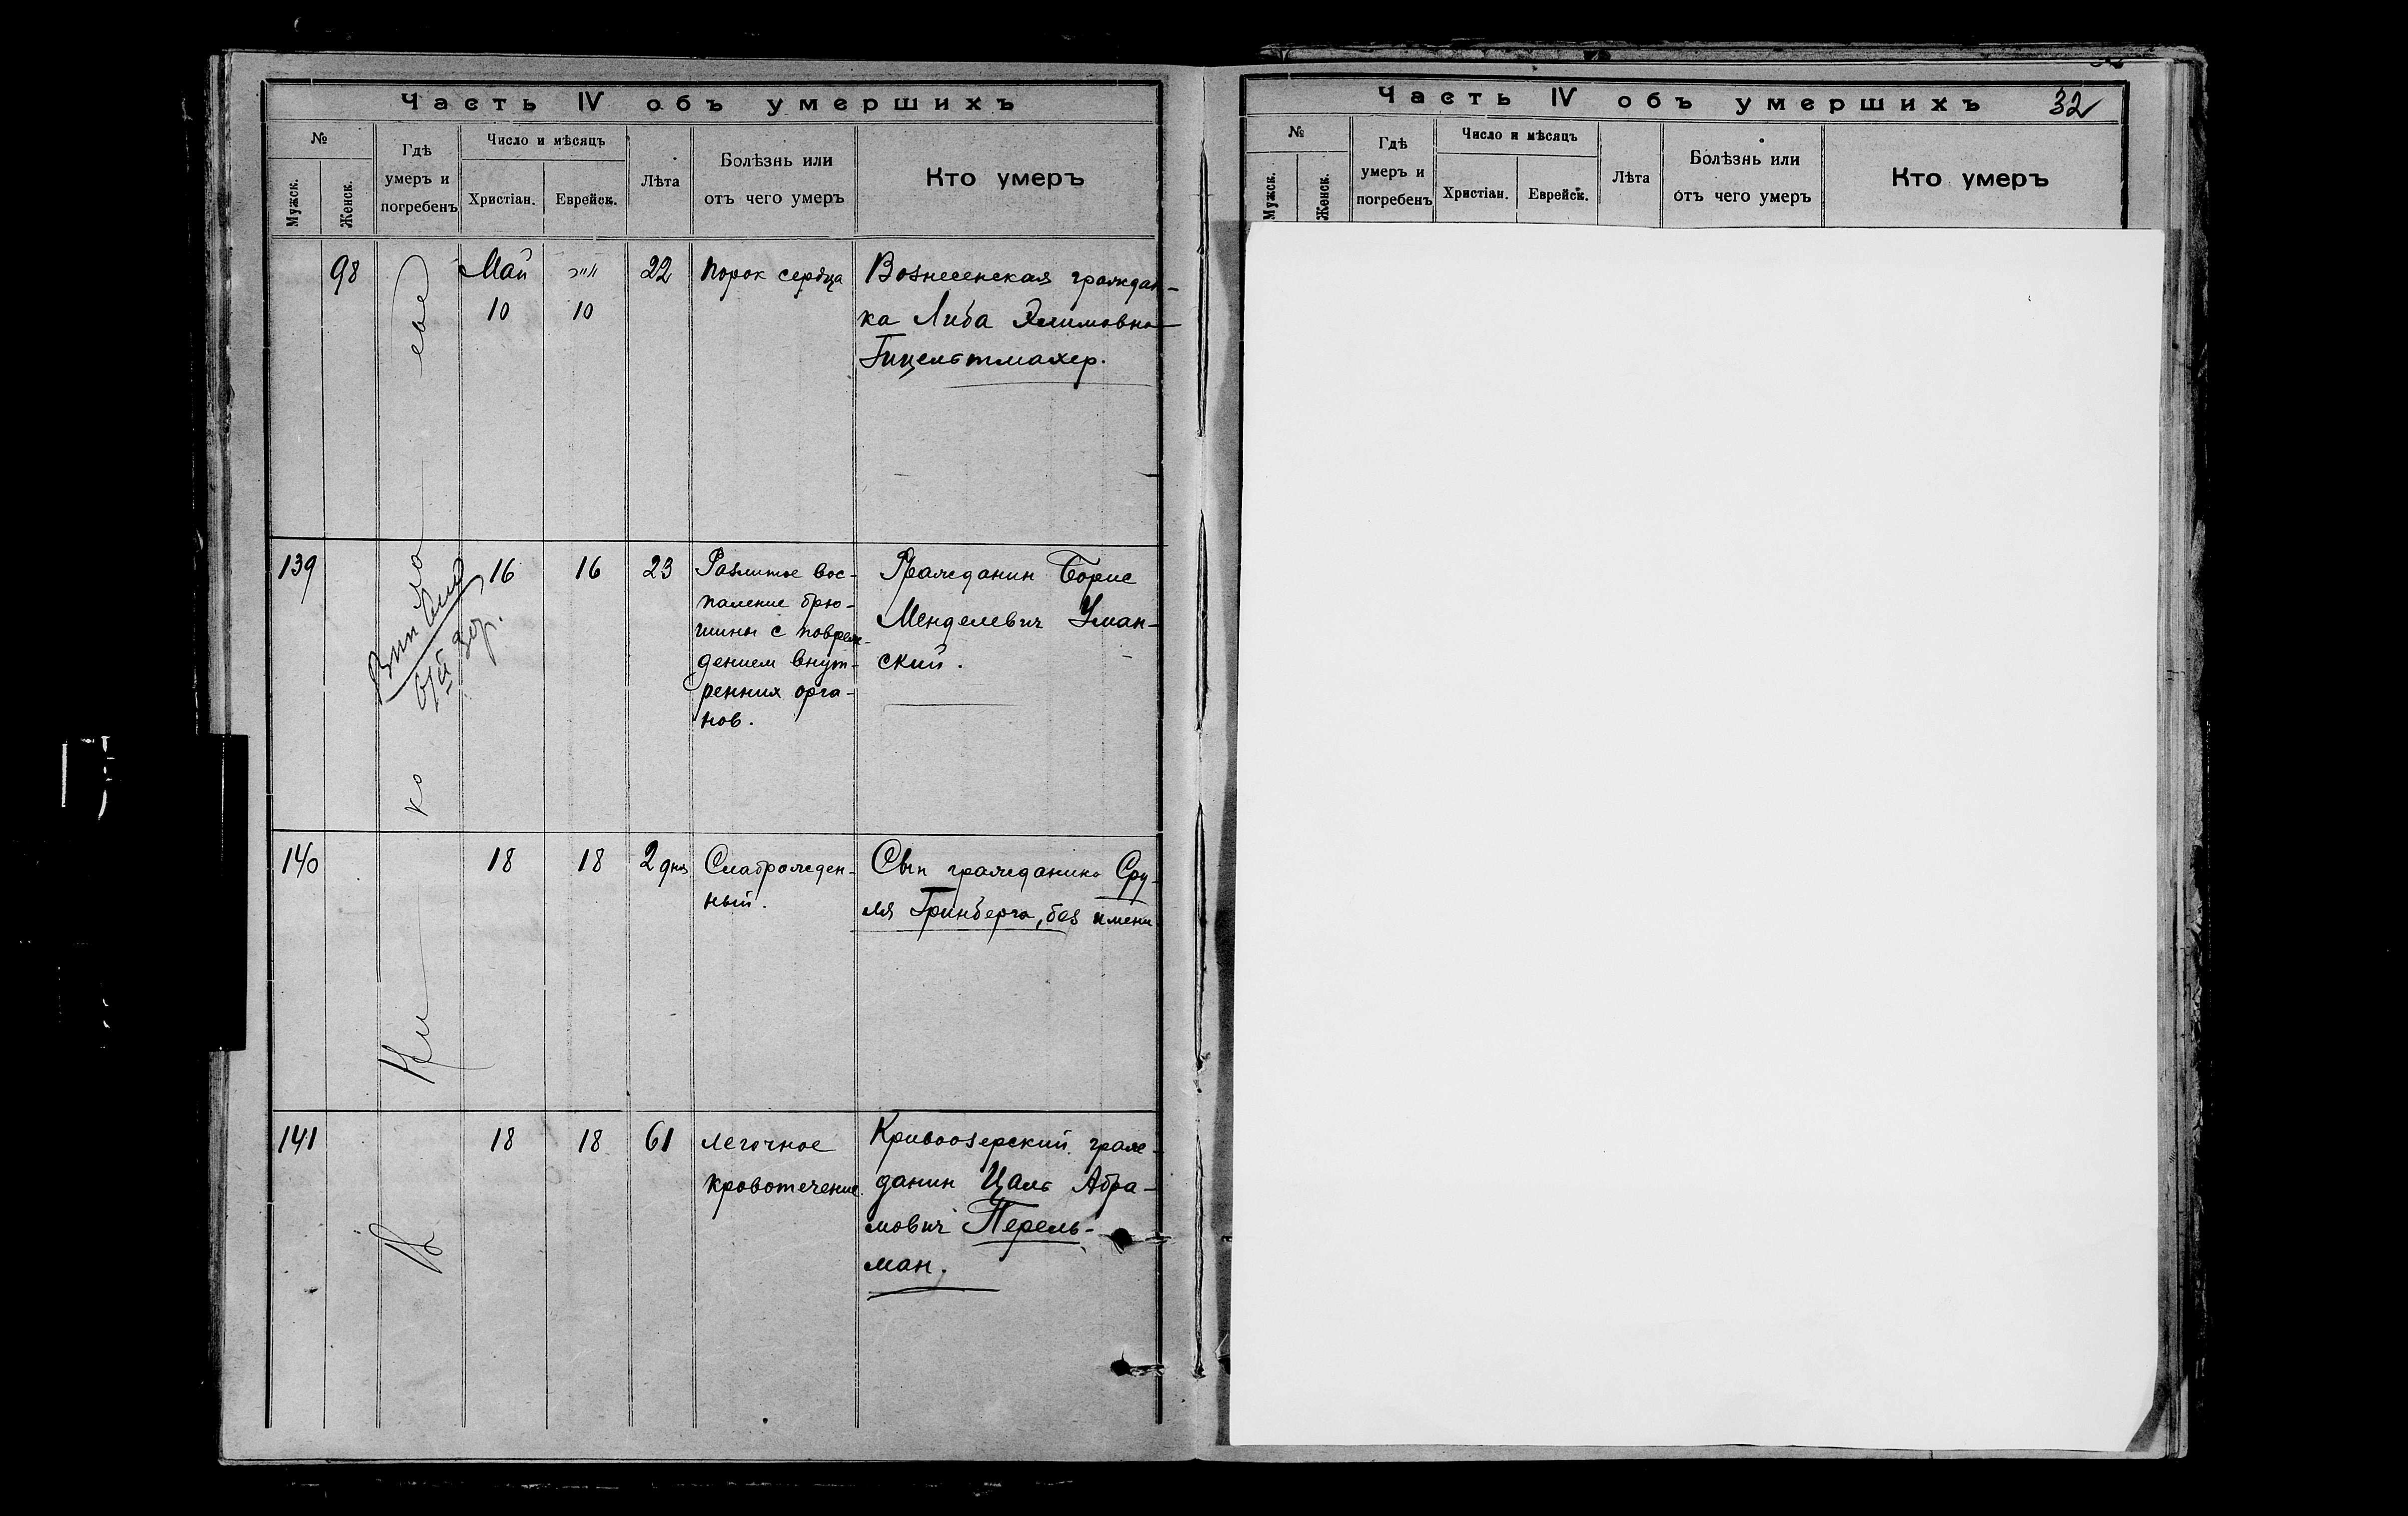 Часть IV объ умершихъ
№
Мужск.
Женск.
Гдѣ
умеръ и
погребенъ
Число и мѣсяцъ
Христіан.
Еврейск.
Лѣта
Болѣзнь или
отъ чего умеръ
Кто умеръ
98
Май
10
10
22
Порок сердца
Вознесенская граждан-
ка Либа Хаимовна
Гицельтмахер.
139
16
16
23
Разлитое вос-
паление брю-
шины с повреж-
дением внут-
ренних орга-
нов.
Гражданин Борис
Менделевич Уман-
ский.
140
18
18
2 дня
Слаброжден-
ный.
Сын гражданина Сру-
ля Гринберга, без имени
141
18
18
61
легочное
кровотечение.
Кривоозерский граж-
данин Цаль Абра-
мович Перель-
ман.
В Николаеве
Часть IV объ умершихъ 32
№
Мужск.
Женск.
Гдѣ
умеръ и
погребенъ
Число и мѣсяцъ
Христіан.
Еврейск.
Лѣта
Болѣзнь или
отъ чего умеръ
Кто умеръ